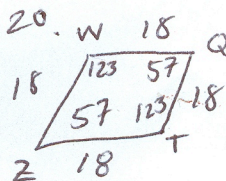 20. W 18 Q
123 57
18 57 123 18
Z 18 T